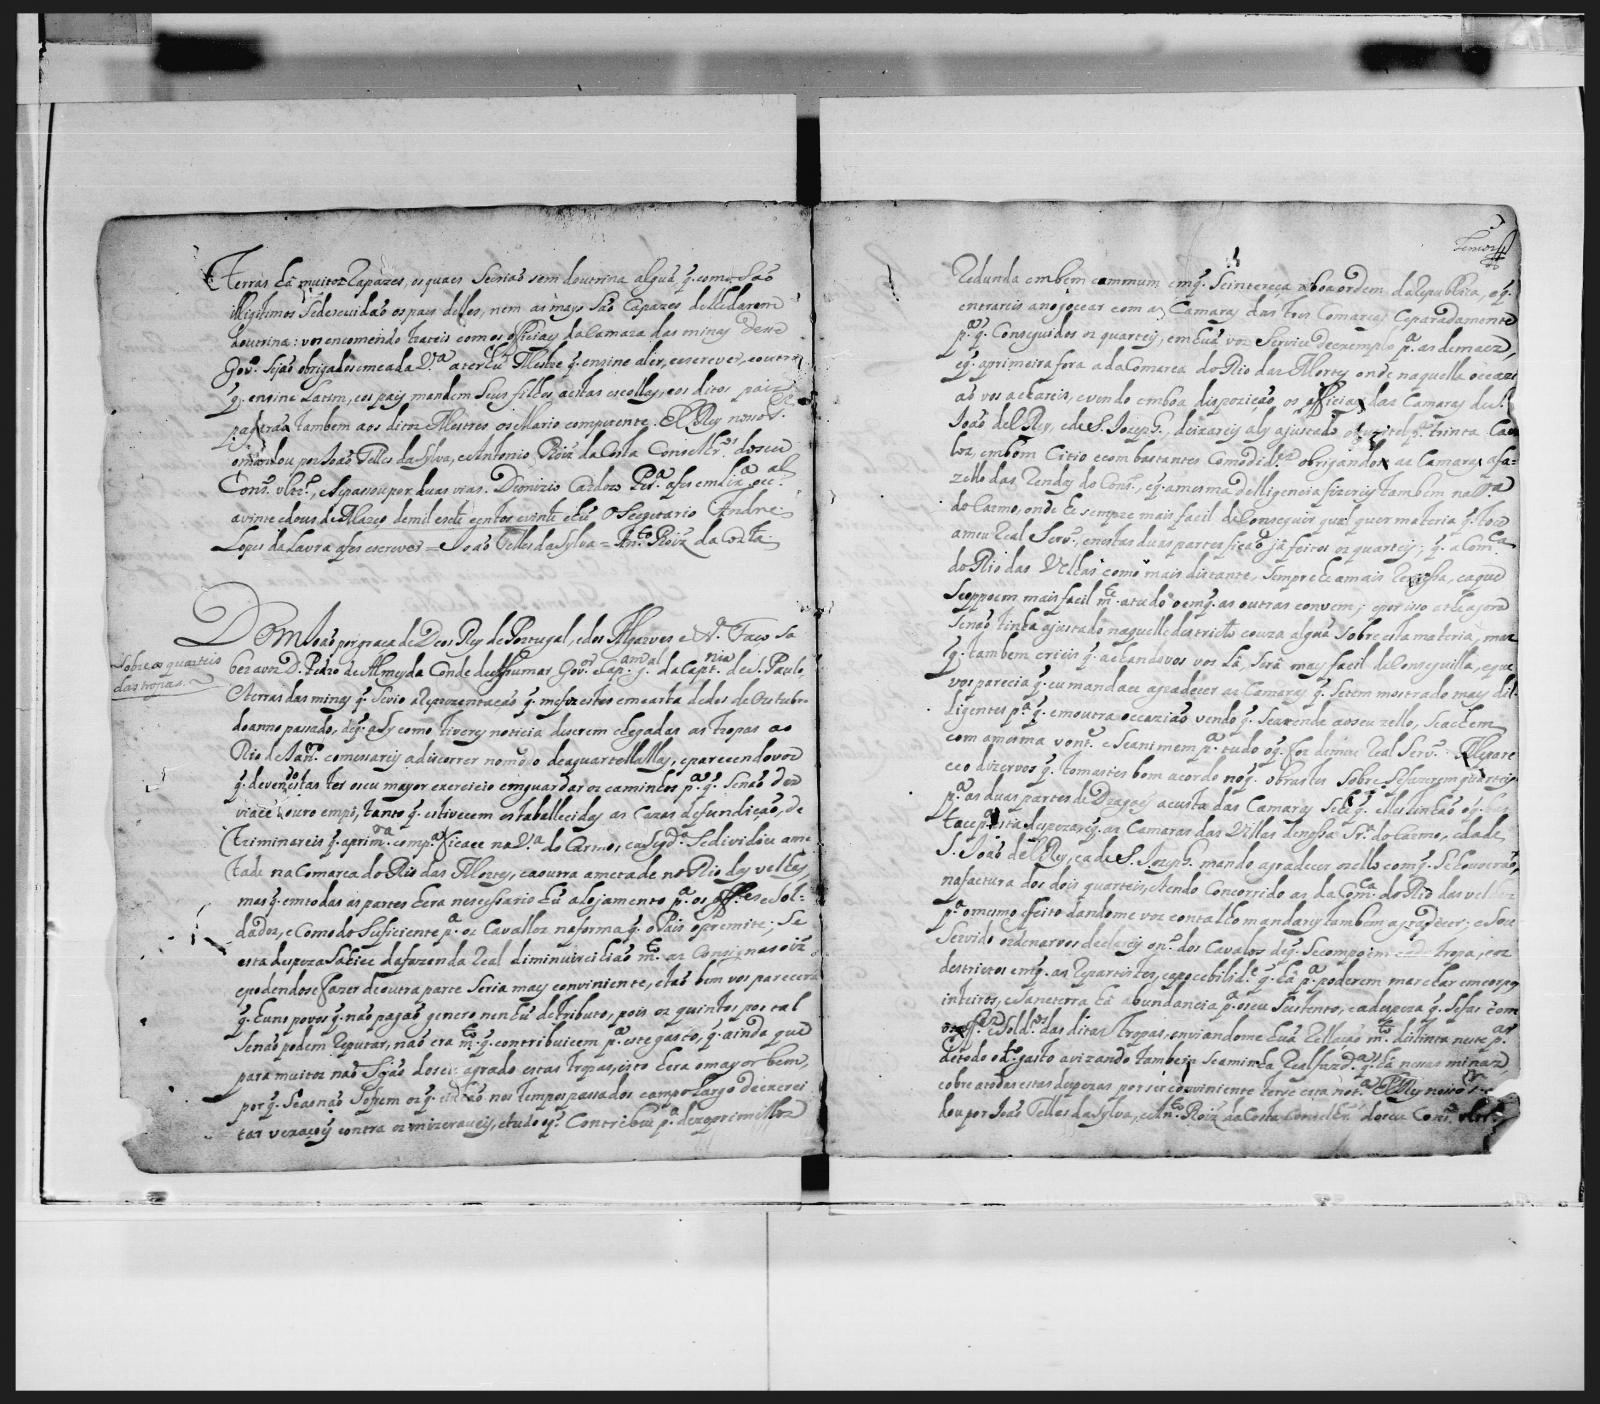 terras há muitos Rapazes, os quaes se criaõ sem doutrina algũa q. como saõ
illigitimos se descuidaõ os pays delles, nem as mays saõ capazes de lhe darem
doutrina: vos encomendo trateis com os officiaes da Camara das minas desse
Gov.º sejaõ obrigados em cada V.ª a ter hũ Mestre q. ensine a ler, e escrever, e outro
q. ensine Latim, e os pays mandem seus filhos a estas escollas, e os ditos pays
pagaraõ tambem aos ditos Mestres o sellario competente. El Rey nosso S.r
o mandou por Joaõ Telles da Sylva, e Antonio Roiz da Costa Conselhr.os do seu
Cons.º Ultr.º, e se passou por duas vias. Dionizio Cardozo Per.ª a fes em Lix.ª occ.al
a vinte e dous de Março de mil e sete centos e vinte e hũ O Secretario Andre
Lopes da Lavra a fes escrever = Joaõ Telles da Sylva = An.to Roiz da Costa.
Dom Joaõ por graça de Deos Rey de Portugal, e dos Algarves &.ª N. Faço sa
Sobre os quarteis
das tropas.
ber a vos D. Pedro de Almeyda Conde de Assumar Gov.or e Cap.am g.al da Capt.nia de S. Paulo,
e terras das minas q. se vio a reprezentaçaõ q. me fizestes em carta de dos de Outubro
do anno passado, de q. asy como tiverey noticia de serem chegadas as tropas ao
Rio de Jan.ro comessareis a discorrer no modo de aquartellallas, e parecendovos
q. devendo estas ter o seu mayor exercicio em guardar os caminhos p.ª q. se naõ des
viace o ouro em pó, tanto q. estivecem estabellecidas as Cazas de fundiçaõ, de
triminareis q. a prim.ra comp.ª ficace na V.ª do Carmo, e a seg.da se dividice a me
tade na Comarca do Rio das Mortes, e a outra ametade no Rio das velhas,
mas q. em todas as partes hera necessario hũ alojamento p.ª os off.es e Sol=
dados, e comodo suficiente p.ª os Cavallos na forma q. o Pais o premite; Se
esta despeza sahice da fazenda Real diminuirsehiaõ m.to as consignaçoiz
e podendose fazer de outra parte seria may conviniente, e taõ bem vos parecera
q. huns povos q. naõ pagaõ genero nenhũ de tributo, pois os quintos por tal
se naõ podem reputar, naõ era m.to q. contribuicem p.ª este gasto, q. ainda que
para muitos naõ sejaõ do seu agrado estas tropas, isto hera o mayor bem,
por q. se as naõ sofrem os q. tinhaõ nos tempos passados campo largo de exerci
tar vexaçoiz contra os mizeraveis, e tudo q.to contribue p.ª dezoprimellos
redunda em bem commum em q. se intereça a boa ordem da Republica, e q.
entrareis a negocear com as Camaras das tres Comarcas separadamente
p.ª q. conseguidos os quarteis em hũa vos service de exemplo p.ª as demaes,
e q. a primeira fora a da Comarca do Rio das Mortes onde naquella occazi
aõ vos achareis, e vendo em boa dispoziçaõ os officiaes das Camaras de S.
Joaõ del Rey, e de S. Joseph, deixareis aly ajustado o quartel p.ª trinta Cava
los, em bom citio e com bastantes comodid.es obrigandose as Camaras a fa=
zello das rendas do Cons.º, e q. a mesma delligencia fizereis tambem na V.ª
do Carmo, onde he sempre mais facil de conseguir qual quer materia q. toca
a meu Real Serv.º, e nestas duas partes ficaõ já feitos os quarteis; q. a Com.ca
do Rio das Velhas como mais distante, sempre he a mais Remissa, e a que
se oppoem mais facil m.te a tudo o em q. as outras convem; e por isso athe agora
se naõ tinha ajustado naquelle destricto couza algũa sobre esta materia, mas
q. tambem crieis q. achandovos vos lá, será mais facil de conseguilla, e que
vos parecia q. eu mandace agradecer as Camaras q. se tem mostrado mais dil=
ligentes p.ª q. em outra occaziaõ vendo q. se attende ao seu zello, se achem
com a mesma vont.e e se animem p.ª tudo o q. for de meu Real Serv.º Me pare
ceo dizervos q. tomastes bom acordo no q. obrastes sobre se fazerem quarteis
p.ª as duas partes de Dragoins a custa das Camaras
e q. as Camaras das Villas de nossa Sr.ª do Carmo, e da de
S. Joaõ del Rey, e a de S. Joseph. mando agradecer o zello com q. se houveraõ
na factura dos dois quarteis, e tendo concorrido as da Com.ca do Rio das velhas
p.ª o mesmo efeito dandome vos conta lho mandarey tambem agradecer; e sou
servido ordenarvos declareis o n.º dos Cavalos de q. se compoem cada tropa, e os
destrictos em q. as repartistes, e a pocebilid.e q. há p.ª poderem marchar em corpos
inteiros, e se na terra há abundancia p.ª o seu sustento, e a despeza q. se fas com
os off.es e Sold.os das ditas tropas, enviandome hũa Rellaçaõ m.to distinta nesta p.te
de todo o d.º gasto avizando tambem se a minha Real faz.da q. há nessas minas
cobre a todas estas despezas por ser conviniente terse esta not.ª El Rey nosso S.r
dou por Joaõ Telles da Sylva, e An.to Roiz da Costa Conselhr.os do seu Cons.º Ultr.º